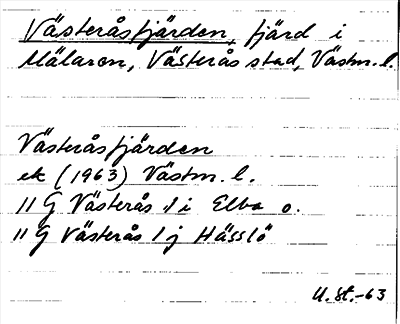 Västeråsfjärden, fjärd i
Mälaren, Västerås stad, Västm. l.
Västeråsfjärden
ek (1963) Västm. l.
11 G Västerås /i Elba o.
11 G Västerås /j Hässlö
U. St.-63